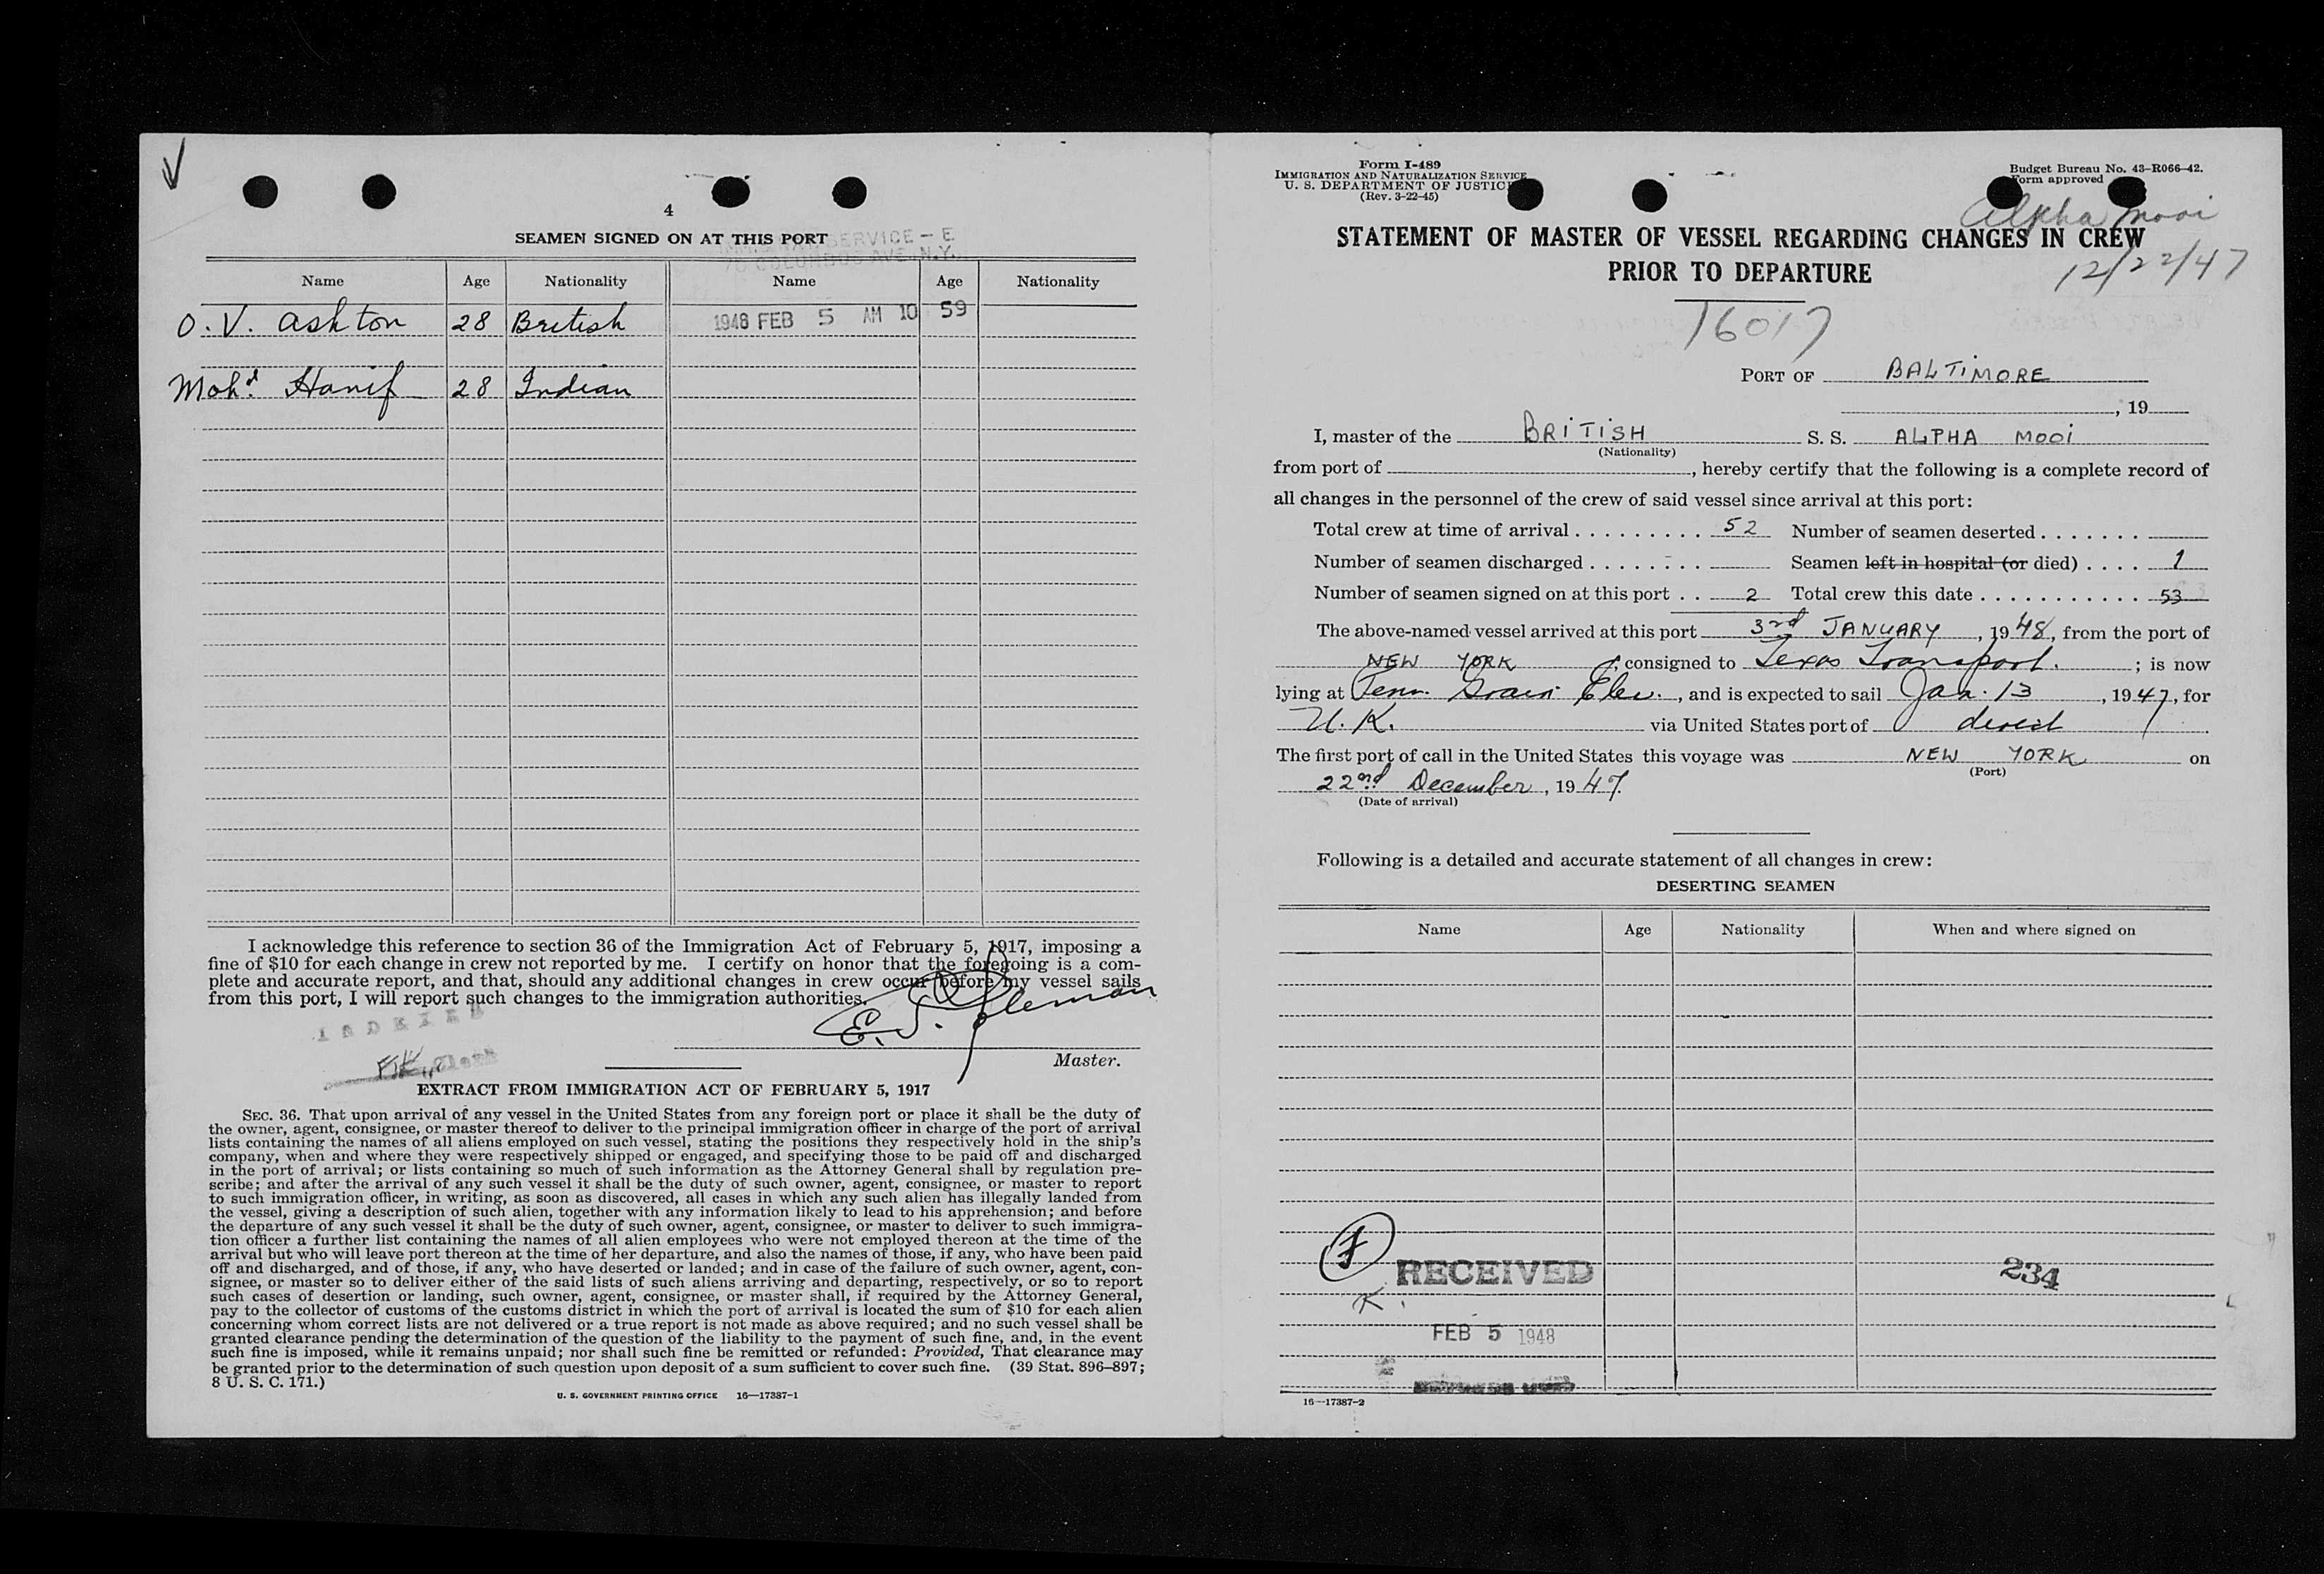 4
SEAMEN SIGNED ON AT THIS PORT
SERVICE — E
70 COLUMBUS AVE. N.Y.
Name Age Nationality Name Age Nationality
O. V. Ashton 28 British 1948 FEB 5 AM 10 59
Mohd. Hanif 28 Indian
I acknowledge this reference to section 36 of the Immigration Act of February 5, 1917, imposing a
fine of $10 for each change in crew not reported by me. I certify on honor that the foregoing is a com-
plete and accurate report, and that, should any additional changes in crew occur before my vessel sails
from this port, I will report such changes to the immigration authorities.
INDEXED
Master.
EXTRACT FROM IMMIGRATION ACT OF FEBRUARY 5, 1917
SEC. 36. That upon arrival of any vessel in the United States from any foreign port or place it shall be the duty of
the owner, agent, consignee, or master thereof to deliver to the principal immigration officer in charge of the port of arrival
lists containing the names of all aliens employed on such vessel, stating the positions they respectively hold in the ship's
company, when and where they were respectively shipped or engaged, and specifying those to be paid off and discharged
in the port of arrival; or lists containing so much of such information as the Attorney General shall by regulation pre-
scribe; and after the arrival of any such vessel it shall be the duty of such owner, agent, consignee, or master to report
to such immigration officer, in writing, as soon as discovered, all cases in which any such alien has illegally landed from
the vessel, giving a description of such alien, together with any information likely to lead to his apprehension; and before
the departure of any such vessel it shall be the duty of such owner, agent, consignee, or master to deliver to such immigra-
tion officer a further list containing the names of all alien employees who were not employed thereon at the time of the
arrival but who will leave port thereon at the time of her departure, and also the names of those, if any, who have been paid
off and discharged, and of those, if any, who have deserted or landed; and in case of the failure of such owner, agent, con-
signee, or master so to deliver either of the said lists of such aliens arriving and departing, respectively, or so to report
such cases of desertion or landing, such owner, agent, consignee, or master shall, if required by the Attorney General,
pay to the collector of customs of the customs district in which the port of arrival is located the sum of $10 for each alien
concerning whom correct lists are not delivered or a true report is not made as above required; and no such vessel shall be
granted clearance pending the determination of the question of the liability to the payment of such fine, and, in the event
such fine is imposed, while it remains unpaid; nor shall such fine be remitted or refunded: Provided, That clearance may
be granted prior to the determination of such question upon deposit of a sum sufficient to cover such fine. (39 Stat. 896–897;
8 U. S. C. 171.)
U. S. GOVERNMENT PRINTING OFFICE 16—17387-1
Form I-489
IMMIGRATION AND NATURALIZATION SERVICE
U. S. DEPARTMENT OF JUSTICE
(Rev. 3-22-45)
Budget Bureau No. 43–R066–42.
Form approved
Alpha Mooi
STATEMENT OF MASTER OF VESSEL REGARDING CHANGES IN CREW
PRIOR TO DEPARTURE
12/22/47
16017
PORT OF BALTIMORE
, 19
I, master of the BRITISH S. S. ALPHA MOOI
(Nationality)
from port of , hereby certify that the following is a complete record of
all changes in the personnel of the crew of said vessel since arrival at this port:
Total crew at time of arrival . . . . . . . . . 52 Number of seamen deserted . . . . . . .
Number of seamen discharged . . . . . . . . Seamen left in hospital (or died) . . . . 1
Number of seamen signed on at this port . . 2 Total crew this date . . . . . . . . . . . . 53
The above-named vessel arrived at this port 3rd JANUARY , 1948, from the port of
NEW YORK ; consigned to Texas Transport. ; is now
lying at Penn. Grain Elev. , and is expected to sail Jan. 13 , 1947, for
U. K. via United States port of direct
The first port of call in the United States this voyage was NEW YORK on
(Port)
22nd December , 1947.
(Date of arrival)
Following is a detailed and accurate statement of all changes in crew:
DESERTING SEAMEN
Name Age Nationality When and where signed on
RECEIVED
234
K.
FEB 5 1948
16—17387-2